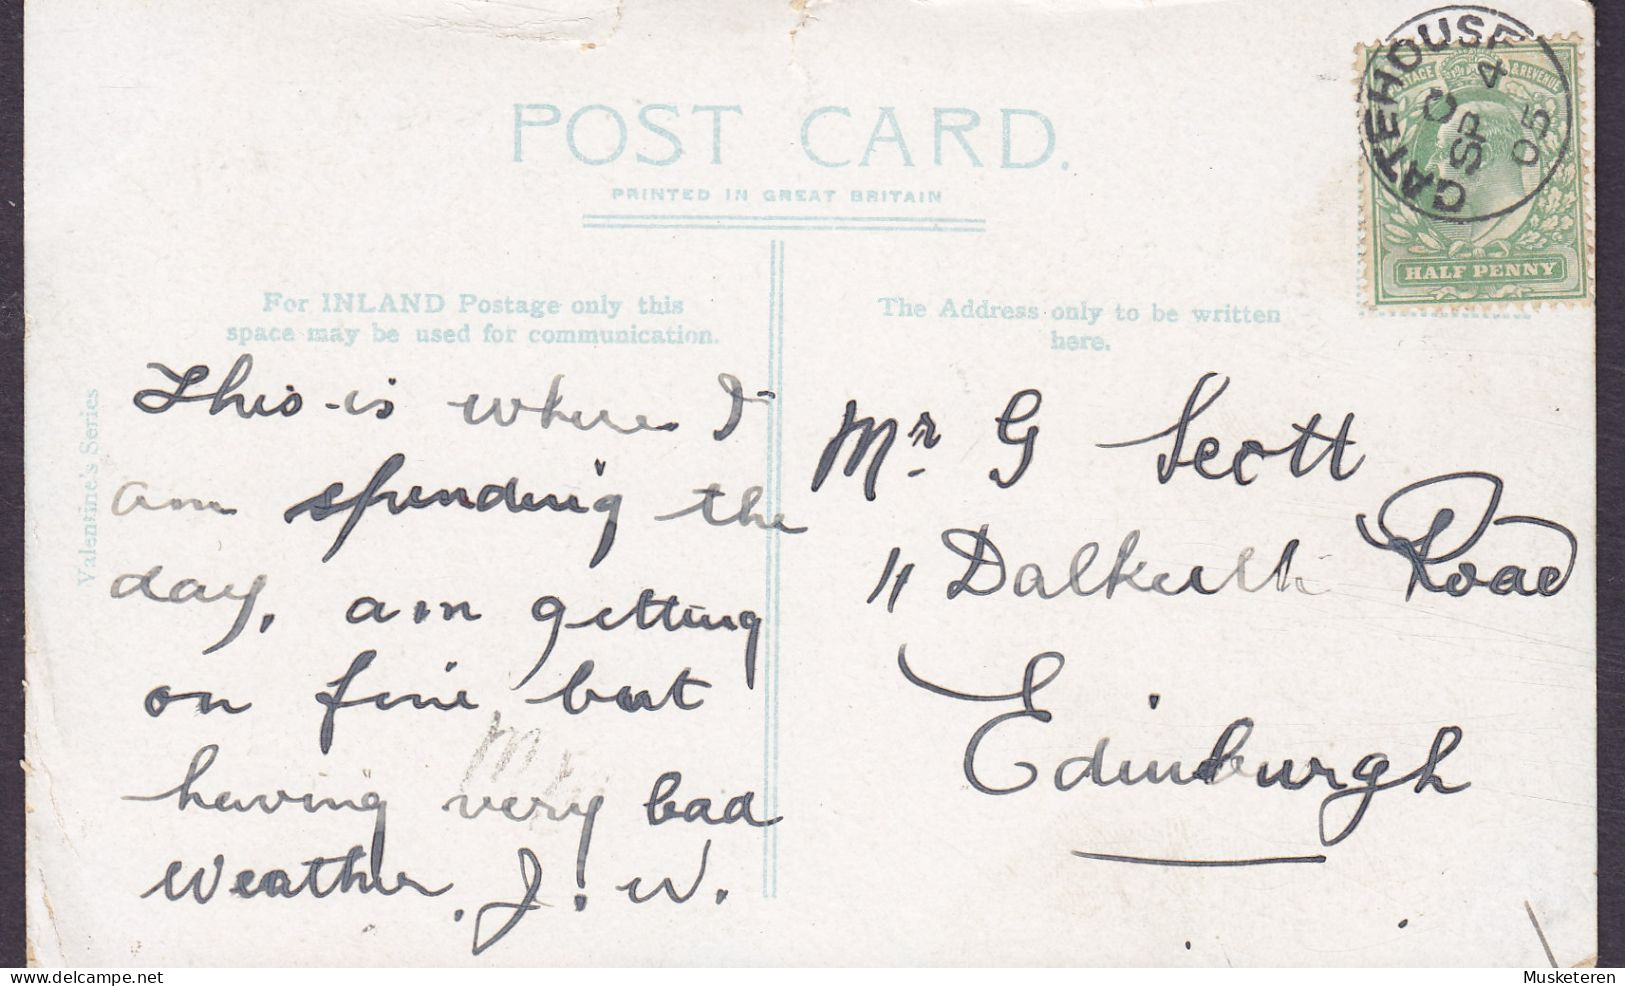 POST CARD.
PRINTED IN GREAT BRITAIN
For INLAND Postage only this
space may be used for communication.
The Address only to be written
here.
Valentine's Series
GATEHOUSE
C
SP 4
05
POSTAGE & REVENUE
HALF PENNY
This is where I
am spending the
day, am getting
on fine but
having very bad
weather. J. W.
Mr. G Scott
11 Dalkeith Road
Edinburgh
delcampe.net
Musketeren